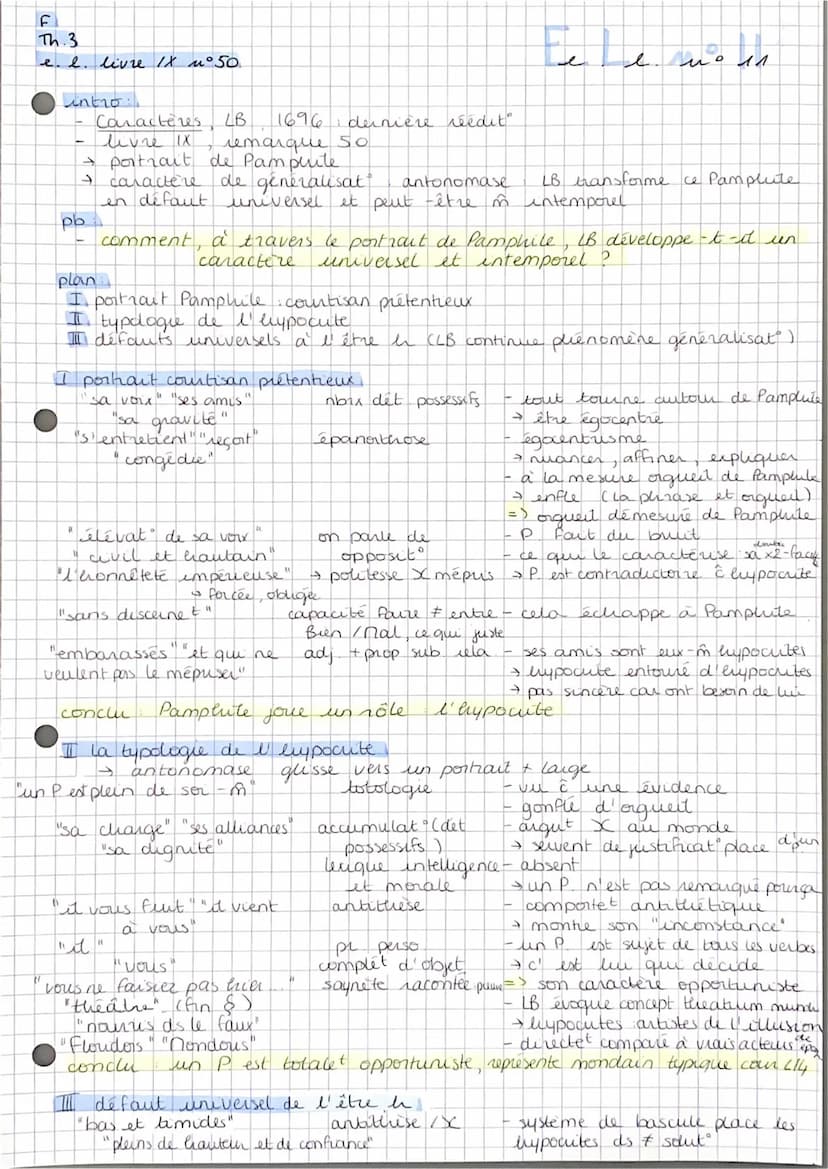 F
Th.3
e. l. livre IX n°50
E. L. n° 11
intro :
- Caractères, LB, 1696 : dernière réédit°
- livre IX, remarque 50
→ portrait de Pamphile
→ caractère de généralisat° : antonomase : LB transforme ce Pamphile
en défaut universel et peut-être m̂ intemporel
pb :
- comment, à travers le portrait de Pamphile, LB développe-t-il un
caractère universel et intemporel ?
plan :
I portrait Pamphile : courtisan prétentieux
II typologie de l'hypocrite
III défauts universels à l'être h (LB continue phénomène généralisat°)
I portrait courtisan prétentieux
"sa voix" "ses amis" nbrx dét possessifs - tout tourne autour de Pamphile
"sa gravité" → être égocentré
"s'entretient" "reçoit" épanorthose - égocentrisme
"congédie" → nuancer, affiner, expliquer
- à la mesure orgueil de Pamphile
→ enfle (la phrase et orgueil)
=> orgueil démesuré de Pamphile
"élévat° de sa voix" on parle de - P fait du bruit
"civil et hautain" opposit° - ce qui le caractérise : sa x2-face
"l'honnêteté impérieuse" → politesse X mépris → P est contradictoire ĉ hypocrite
↳ forcée, obligée
"sans discernet" capacité faire ≠ entre - cela échappe à Pamphile
Bien / Mal, ce qui juste
"embarassés" "et qui ne adj. + prop sub rela - ses amis sont eux-m̂ hypocrites
veulent pas le mépriser" → hypocrite entouré d'hypocrites
→ pas sincère car ont besoin de lui
conclu : Pamphile joue un rôle : l'hypocrite
II la typologie de l'hypocrite
→ antonomase glisse vers un portrait + large
"un P est plein de soi-m̂" totologie - vu ĉ une évidence
- gonflé d'orgueil
"sa charge" "ses alliances" accumulat° (dét - argut X au monde
"sa dignité" possessifs) → servent de justificat° place d'un
lexique intelligence - absent
et morale → un P. n'est pas remarqué pour ça
"il vous fuit" "il vient antithèse - comportet antithétique
à vous" → montre son "inconstance"
"il" pr. perso - un P. est sujet de tous les verbes
"vous" complét d'objet → c'est lui qui décide
"vous ne faisiez pas hier..." saynète racontée => son caractère opportuniste
"théâtre" (fin §) - LB évoque concept theatrum mundi
"nourris ds le faux" → hypocrites : artistes de l'illusion
"Floridors" "Mondoris" - directet comparé à vrais acteurs de
conclu : un P est totalet opportuniste, représente mondain typique cour L14
III défaut universel de l'être h
"bas et timides" antithèse / X - système de bascule place les
"pleins de hauteur et de confiance" hypocrites ds ≠ solut°